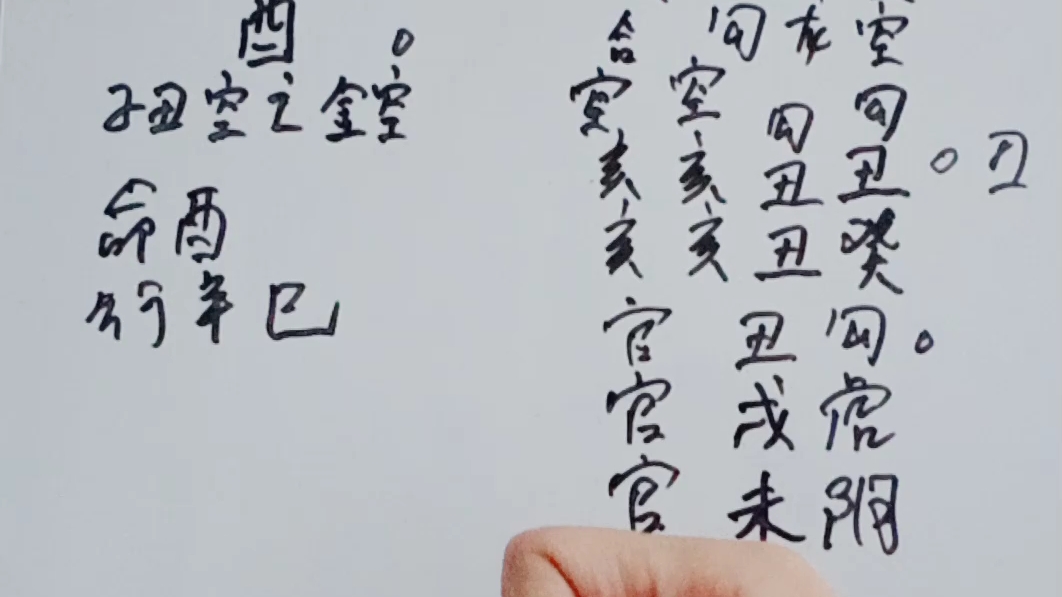 酉
子丑空亡金空
命酉
行年巳
合 勾 空
空 空 勾 勾
亥 亥 丑 丑 丑
亥 亥 丑 癸
官 丑 勾
官 戌
官 未 阴